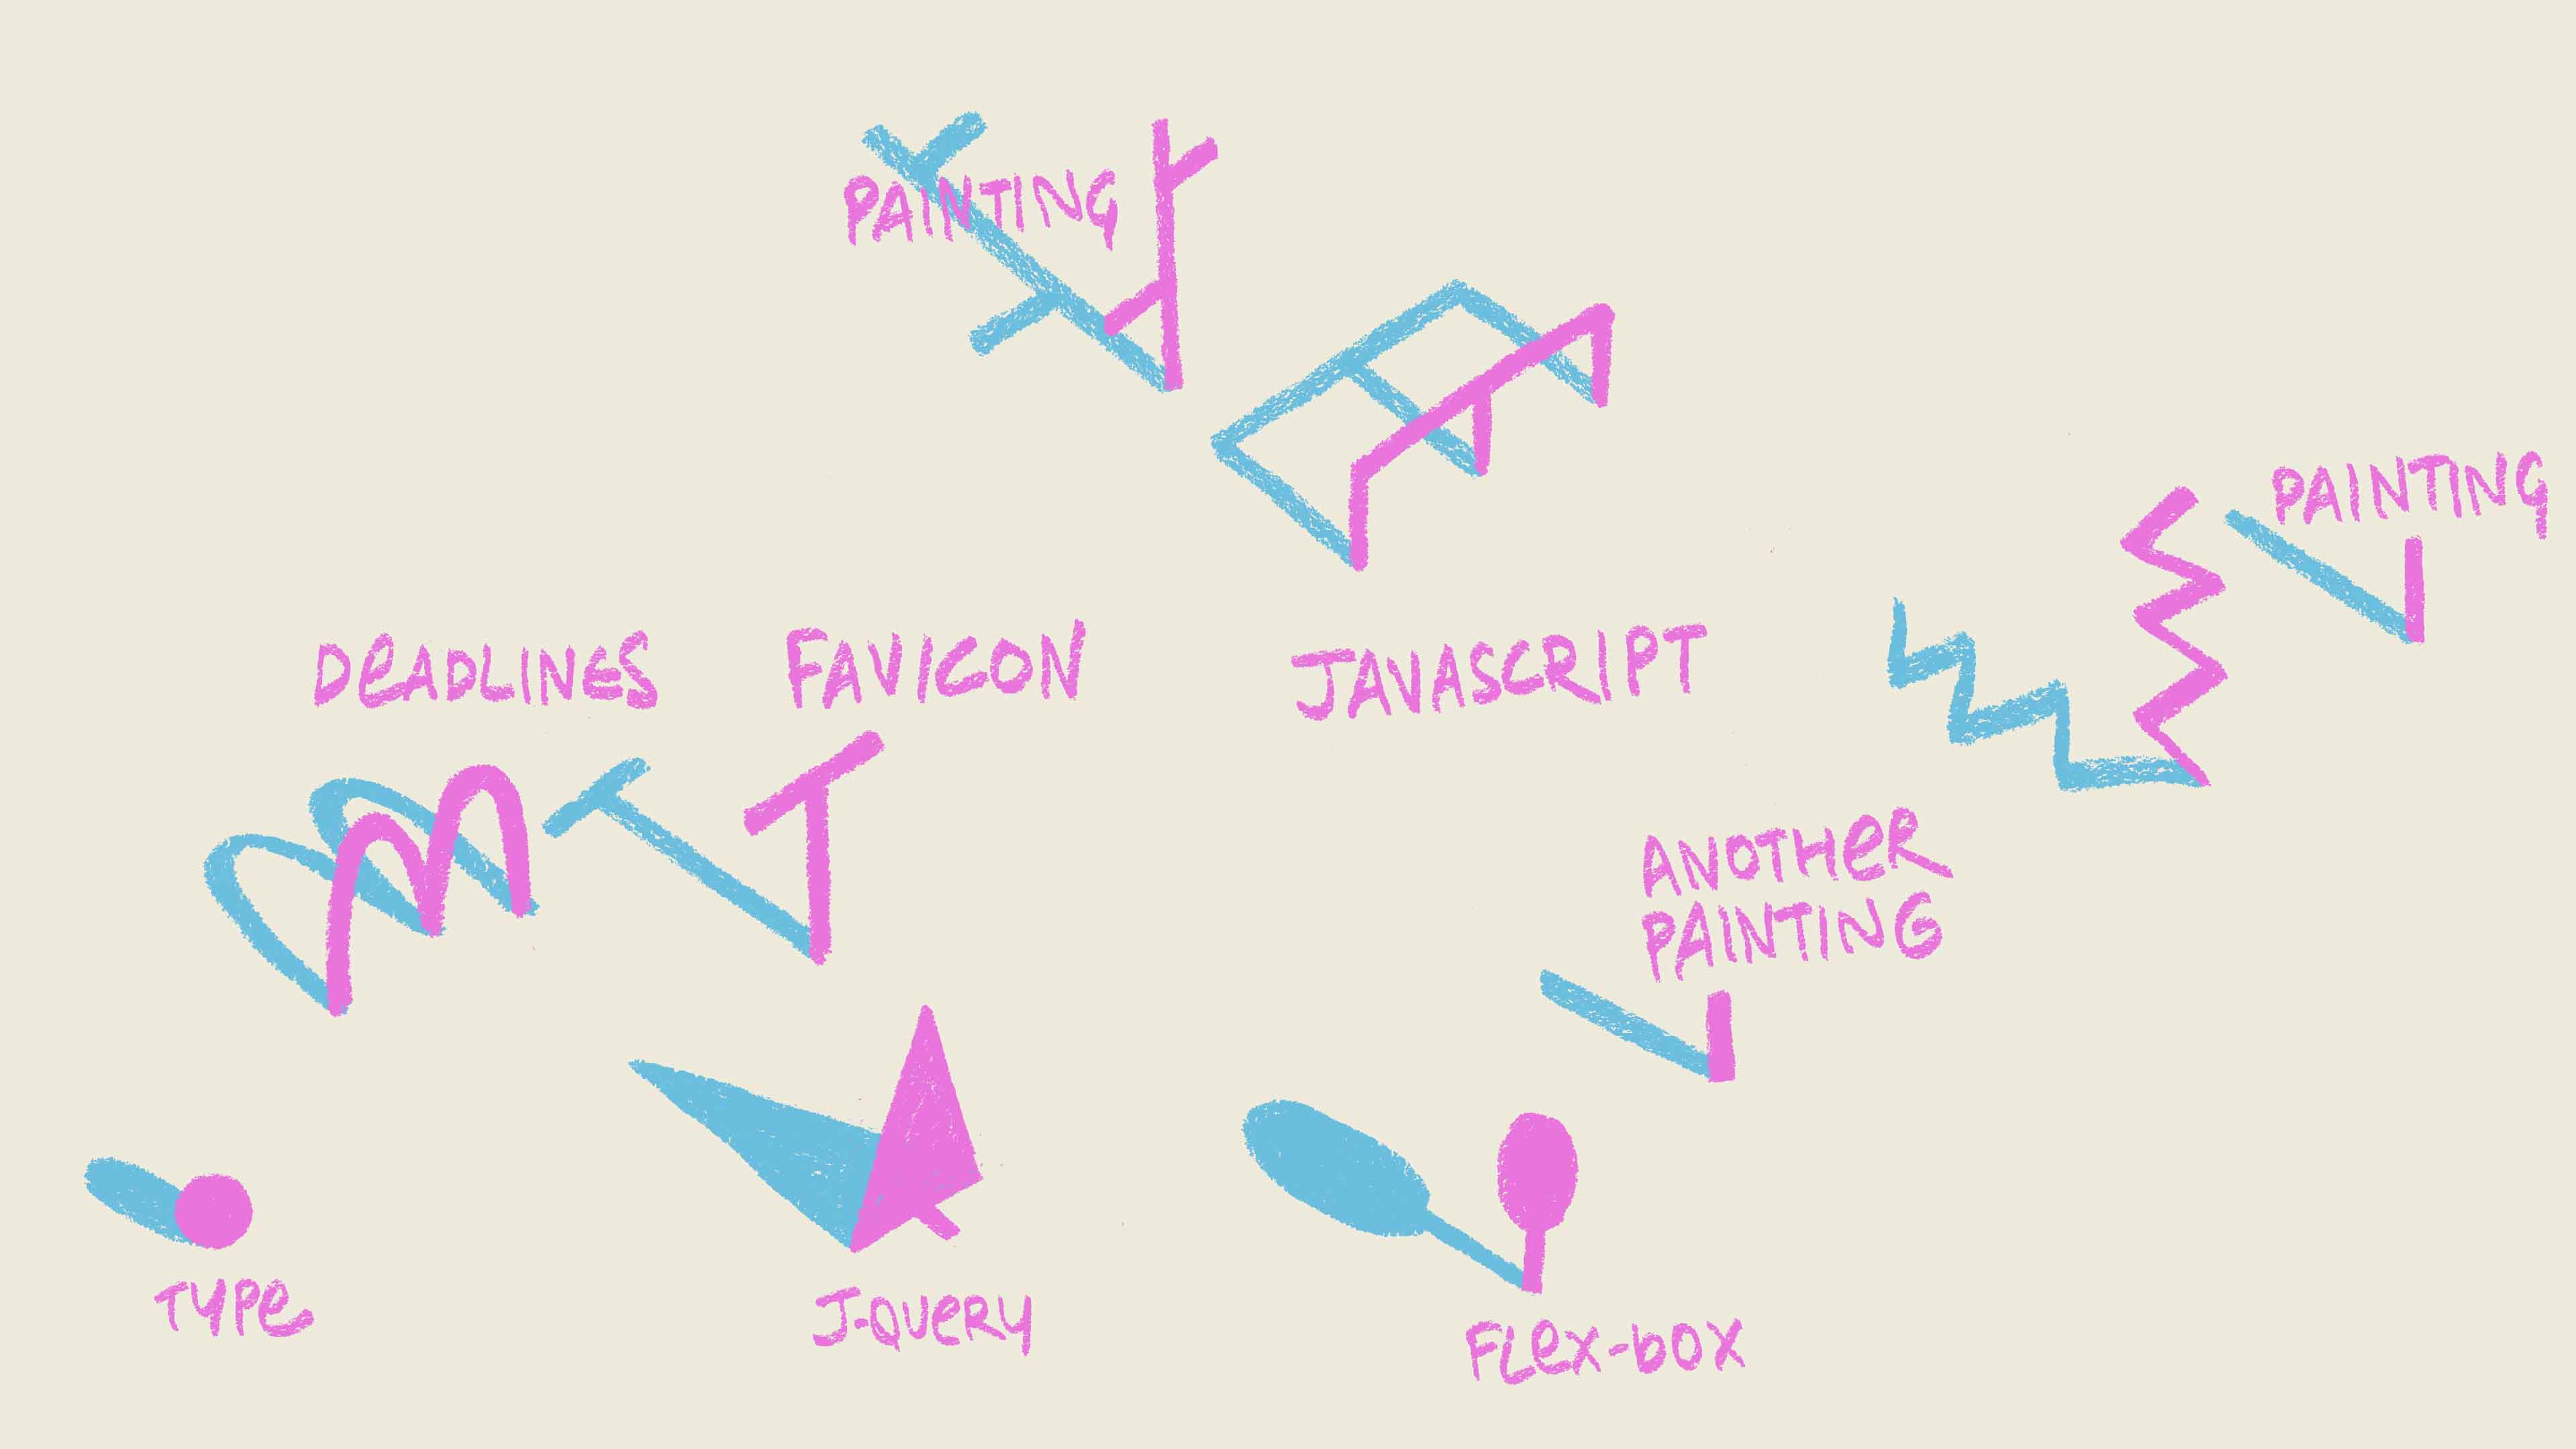 PAINTING
PAINTING
DeADLINeS
FAVICON
JAVASCRIPT
ANOTHeR
PAINTING
TYPe
J-QUeRY
FLex-bOX